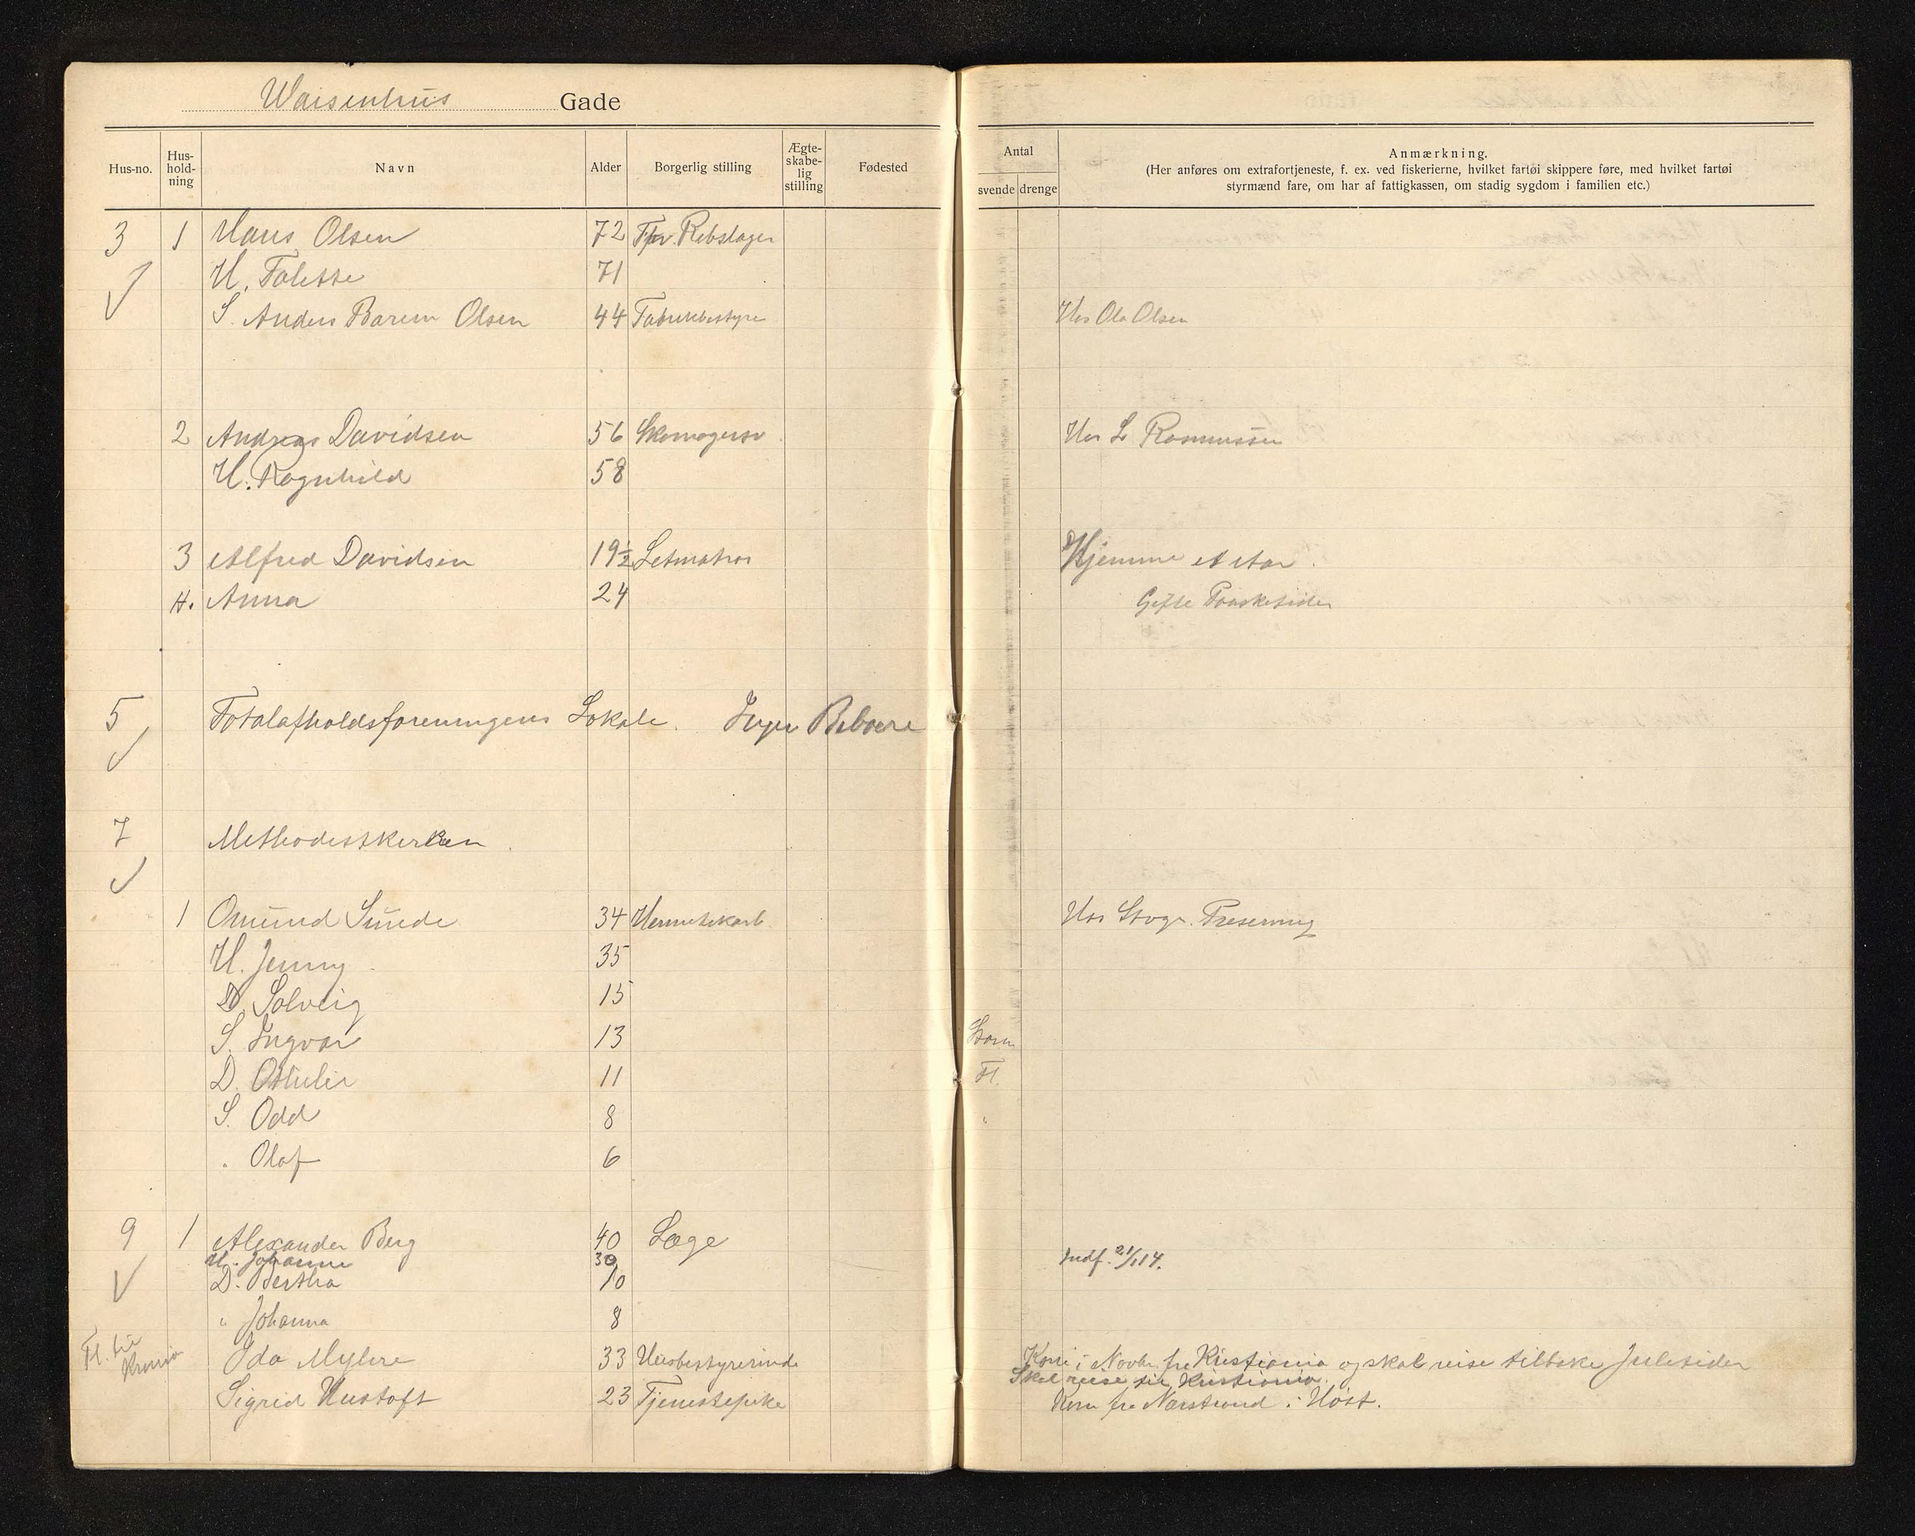 Waisenhus Gade
Hus-no. Hus-holdning Navn Alder Borgerlig stilling Ægte-skabe-lig stilling Fødested Antal svende drenge Anmærkning.
(Her anføres om extrafortjeneste, f. ex. ved fiskerierne, hvilket fartøi skippere føre, med hvilket fartøi
styrmænd fare, om har af fattigkassen, om stadig sygdom i familien etc.)
3 1 Hans Olsen 72 Rebslager
H. Talette 71
S. Anders Barem Olsen 44 Fabrikbestyre Hos Ola Olsen
2 Andreas Davidsen 56 Skomagersv Hos L Rasmussen
H. Ragnhild 58
3 Alfred Davidsen 19½ Letmatros Hjemme et Aar.
H. Anna 24 Gifte Paasketider
5 Totalafholdsforeningens Lokale. Ingen Beboere
7 Methodistkerken.
1 Omund Sunde 34 Hermetikarb. Hos Stvgr. Preserving
H. Jenny 35
D. Solveig 15
S. Ingvar 13
D. Othilie 11 Fl.
S. Odd 8 "
" Olaf 6
9 1 Alexander Berg 40 Læge
H. Johanne 30 Indf. 21/1 14.
D. Bertha 10
" Johanna 8
Fl. til Krania Ida Myhre 33 Husbestyrerinde Kom i Novbr. fra Kristiania og skal reise tilbake Juletider
Skal reise til Kristiania.
Sigrid Hustoft 23 Tjenestepike Kom fra Nærstrand i Høst.